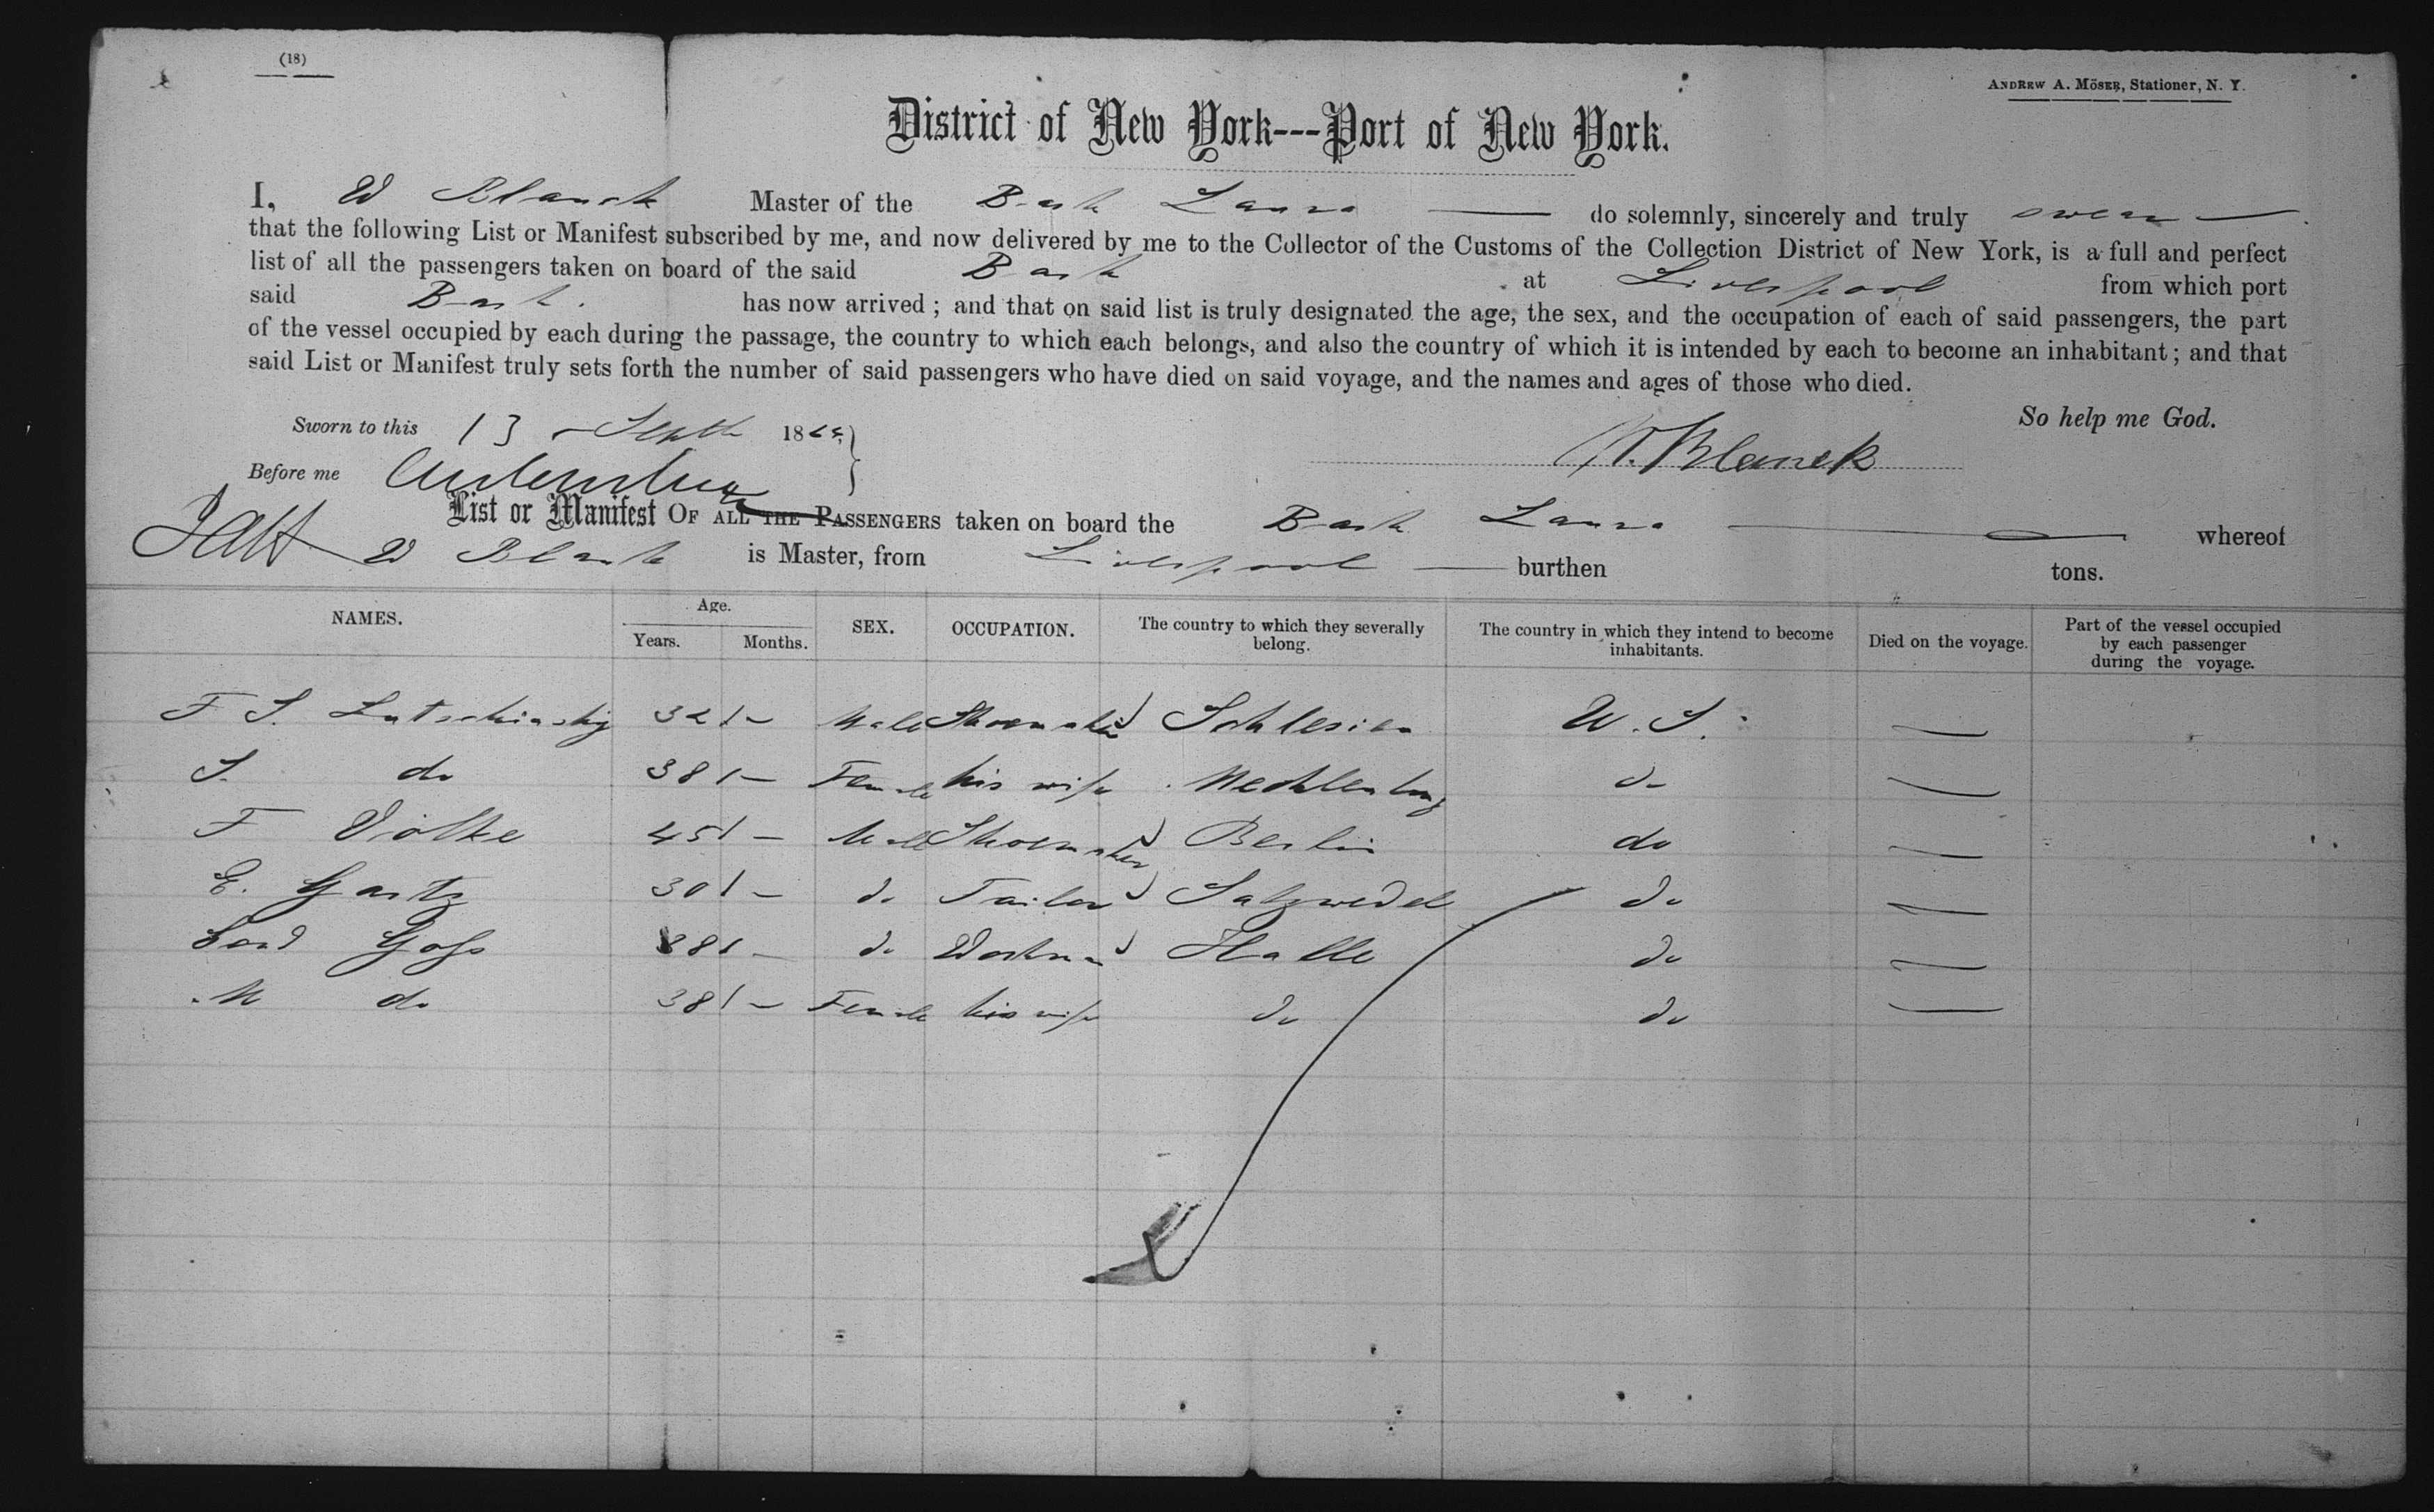 (18)
ANDREW A. MÖSER, Stationer, N. Y.
District of New York---Port of New York.
I, W Blanck Master of the Bark Laura do solemnly, sincerely and truly swear
that the following List or Manifest subscribed by me, and now delivered by me to the Collector of the Customs of the Collection District of New York, is a full and perfect
list of all the passengers taken on board of the said Bark at Liverpool from which port
said Bark. has now arrived; and that on said list is truly designated the age, the sex, and the occupation of each of said passengers, the part
of the vessel occupied by each during the passage, the country to which each belongs, and also the country of which it is intended by each to become an inhabitant; and that
said List or Manifest truly sets forth the number of said passengers who have died on said voyage, and the names and ages of those who died.
So help me God.
Sworn to this 13 Septb 18
W. Blanck
Before me
List or Manifest OF ALL THE PASSENGERS taken on board the Bark Laura whereof
W Blanck is Master, from Liverpool burthen tons.
NAMES. Age. Years. Months. SEX. OCCUPATION. The country to which they severally belong. The country in which they intend to become inhabitants. Died on the voyage. Part of the vessel occupied by each passenger during the voyage.
F S. Lutschinsky 32 / – Male Shoemaker Schlesien U. S. —
S. do 38 / – Female his wife Mecklenburg do —
F Völke 45 / – Male Shoemaker Berlin do —
E. Gartz 30 / – do Tailor Salzwedel do —
Goss 38 / – do Workman Halle do —
M do 38 / – Female his wife do do —